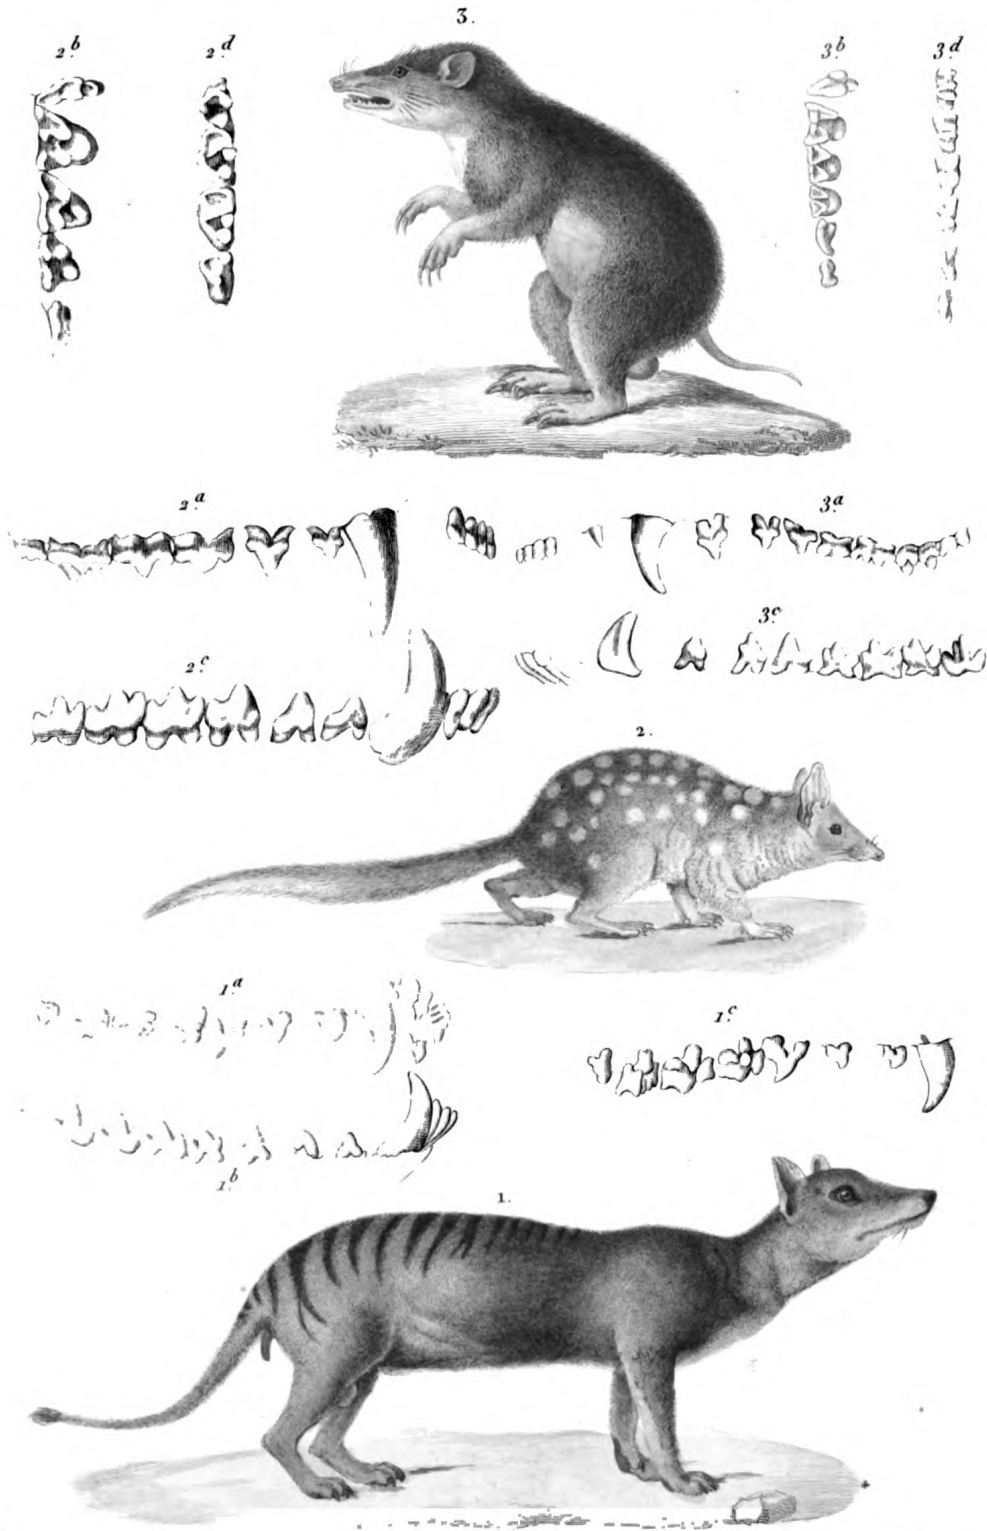 3.
2.b
2.d
3.b
3.d
2.a
3.a
3.c
2.c
2.
1.a
1.c
1.b
1.